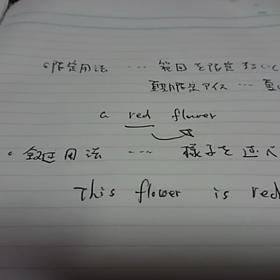 ・限定用法 … 範囲を限定するいし
期間限定アイス … 夏
a red flower
・叙述用法 … 様子を述べ
This flower is red